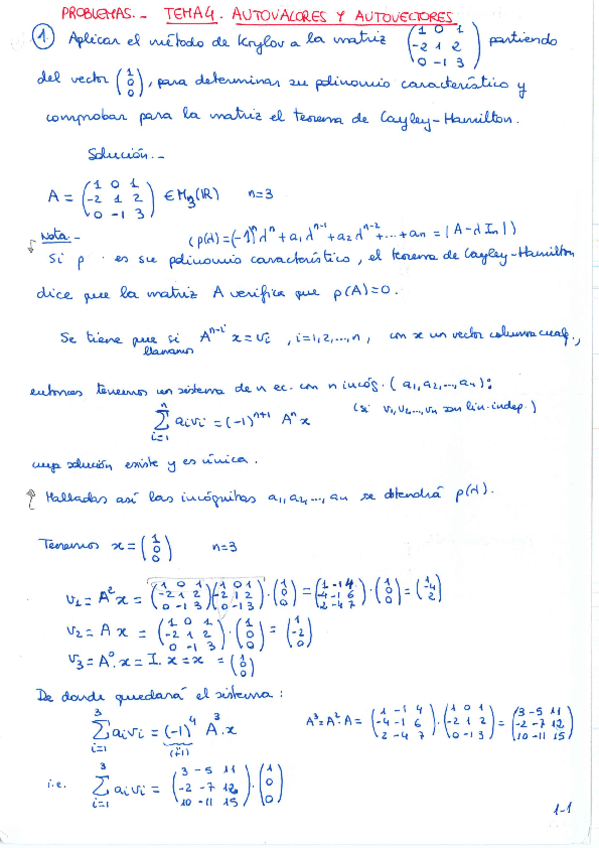 PROBLEMAS.- TEMA 4. AUTOVALORES Y AUTOVECTORES
1. Aplicar el método de Krylov a la matriz (1 0 1 / -2 1 2 / 0 -1 3) partiendo
del vector (1 / 0 / 0), para determinar su polinomio característico y
comprobar para la matriz el teorema de Cayley-Hamilton.
Solución.-
A = (1 0 1 / -2 1 2 / 0 -1 3) ∈ M₃(ℝ) n=3
Nota.- (p(λ)=(-1)ⁿλⁿ+a₁λⁿ⁻¹+a₂λⁿ⁻²+...+aₙ=|A-λIₙ|)
Si p es su polinomio característico, el teorema de Cayley-Hamilton
dice que la matriz A verifica que p(A)=0.
Se tiene que si Aⁿ⁻ⁱx=vᵢ, i=1,2,...,n, con x un vector columna cualq.,
llamamos
entonces tenemos un sistema de n ec. con n incóg. (a₁,a₂,...,aₙ):
n Σ i=1 aᵢvᵢ=(-1)ⁿ⁺¹ Aⁿx (si v₁,v₂,...,vₙ son lin. indep.)
cuya solución existe y es única.
Halladas así las incógnitas a₁,a₂,...,aₙ se obtendrá p(λ).
Tenemos x=(1 / 0 / 0) n=3
v₁=A²x=(1 0 1 / -2 1 2 / 0 -1 3)(1 0 1 / -2 1 2 / 0 -1 3)·(1 / 0 / 0)=(1 -1 4 / -4 -1 6 / 2 -4 7)·(1 / 0 / 0)=(1 / -4 / 2)
v₂=Ax=(1 0 1 / -2 1 2 / 0 -1 3)·(1 / 0 / 0)=(1 / -2 / 0)
v₃=A⁰.x=I.x=x=(1 / 0 / 0)
De donde quedará el sistema:
3 Σ i=1 aᵢvᵢ=(-1)⁴ A³.x A³=A².A=(1 -1 4 / -4 -1 6 / 2 -4 7)·(1 0 1 / -2 1 2 / 0 -1 3)=(3 -5 11 / -2 -7 12 / 10 -11 15)
(+1)
i.e. 3 Σ i=1 aᵢvᵢ=(3 -5 11 / -2 -7 12 / 10 -11 15)·(1 / 0 / 0)
1-1